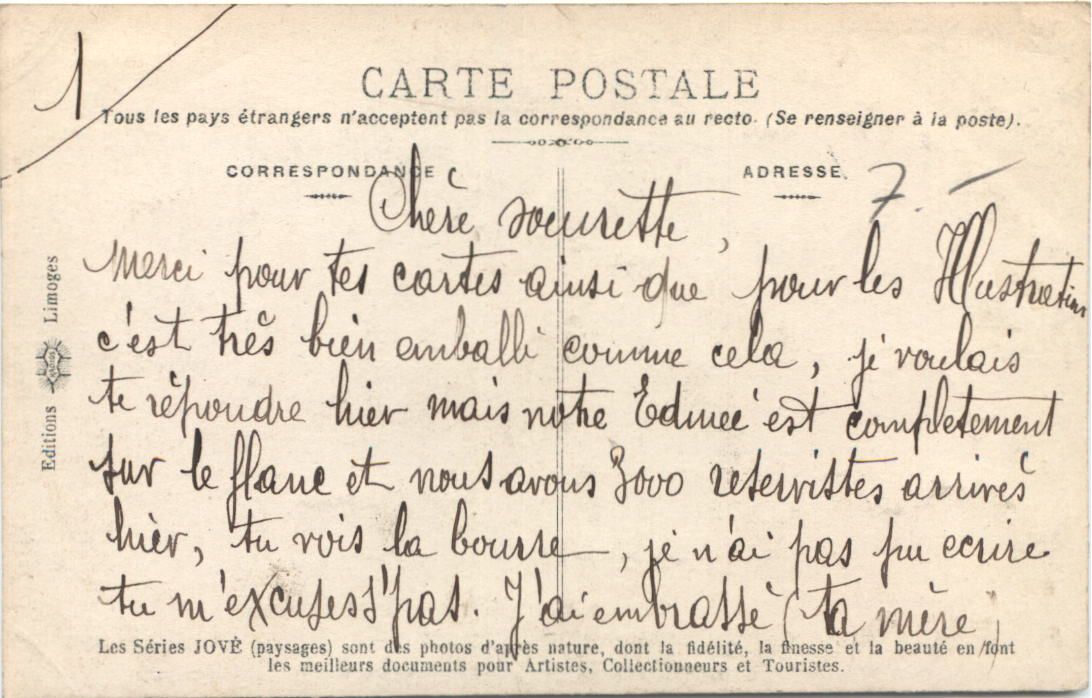 1
CARTE POSTALE
Tous les pays étrangers n'acceptent pas la correspondance au recto. (Se renseigner à la poste).
CORRESPONDANCE
ADRESSE
7. –
Chère soeurette,
Merci pour tes cartes ainsi que pour les Illustration
c'est très bien emballé comme cela, je voulais
te répondre hier mais notre Edmeé est completement
sur le flanc et nous avons 3000 reservistes arrivés
hier, tu vois la bourre, je n'ai pas pu ecrire
tu m'excuses s'pas. J'ai embrassé (ta mère)
Editions JOVÉ Limoges
Les Séries JOVÉ (paysages) sont des photos d'après nature, dont la fidélité, la finesse et la beauté en font
les meilleurs documents pour Artistes, Collectionneurs et Touristes.